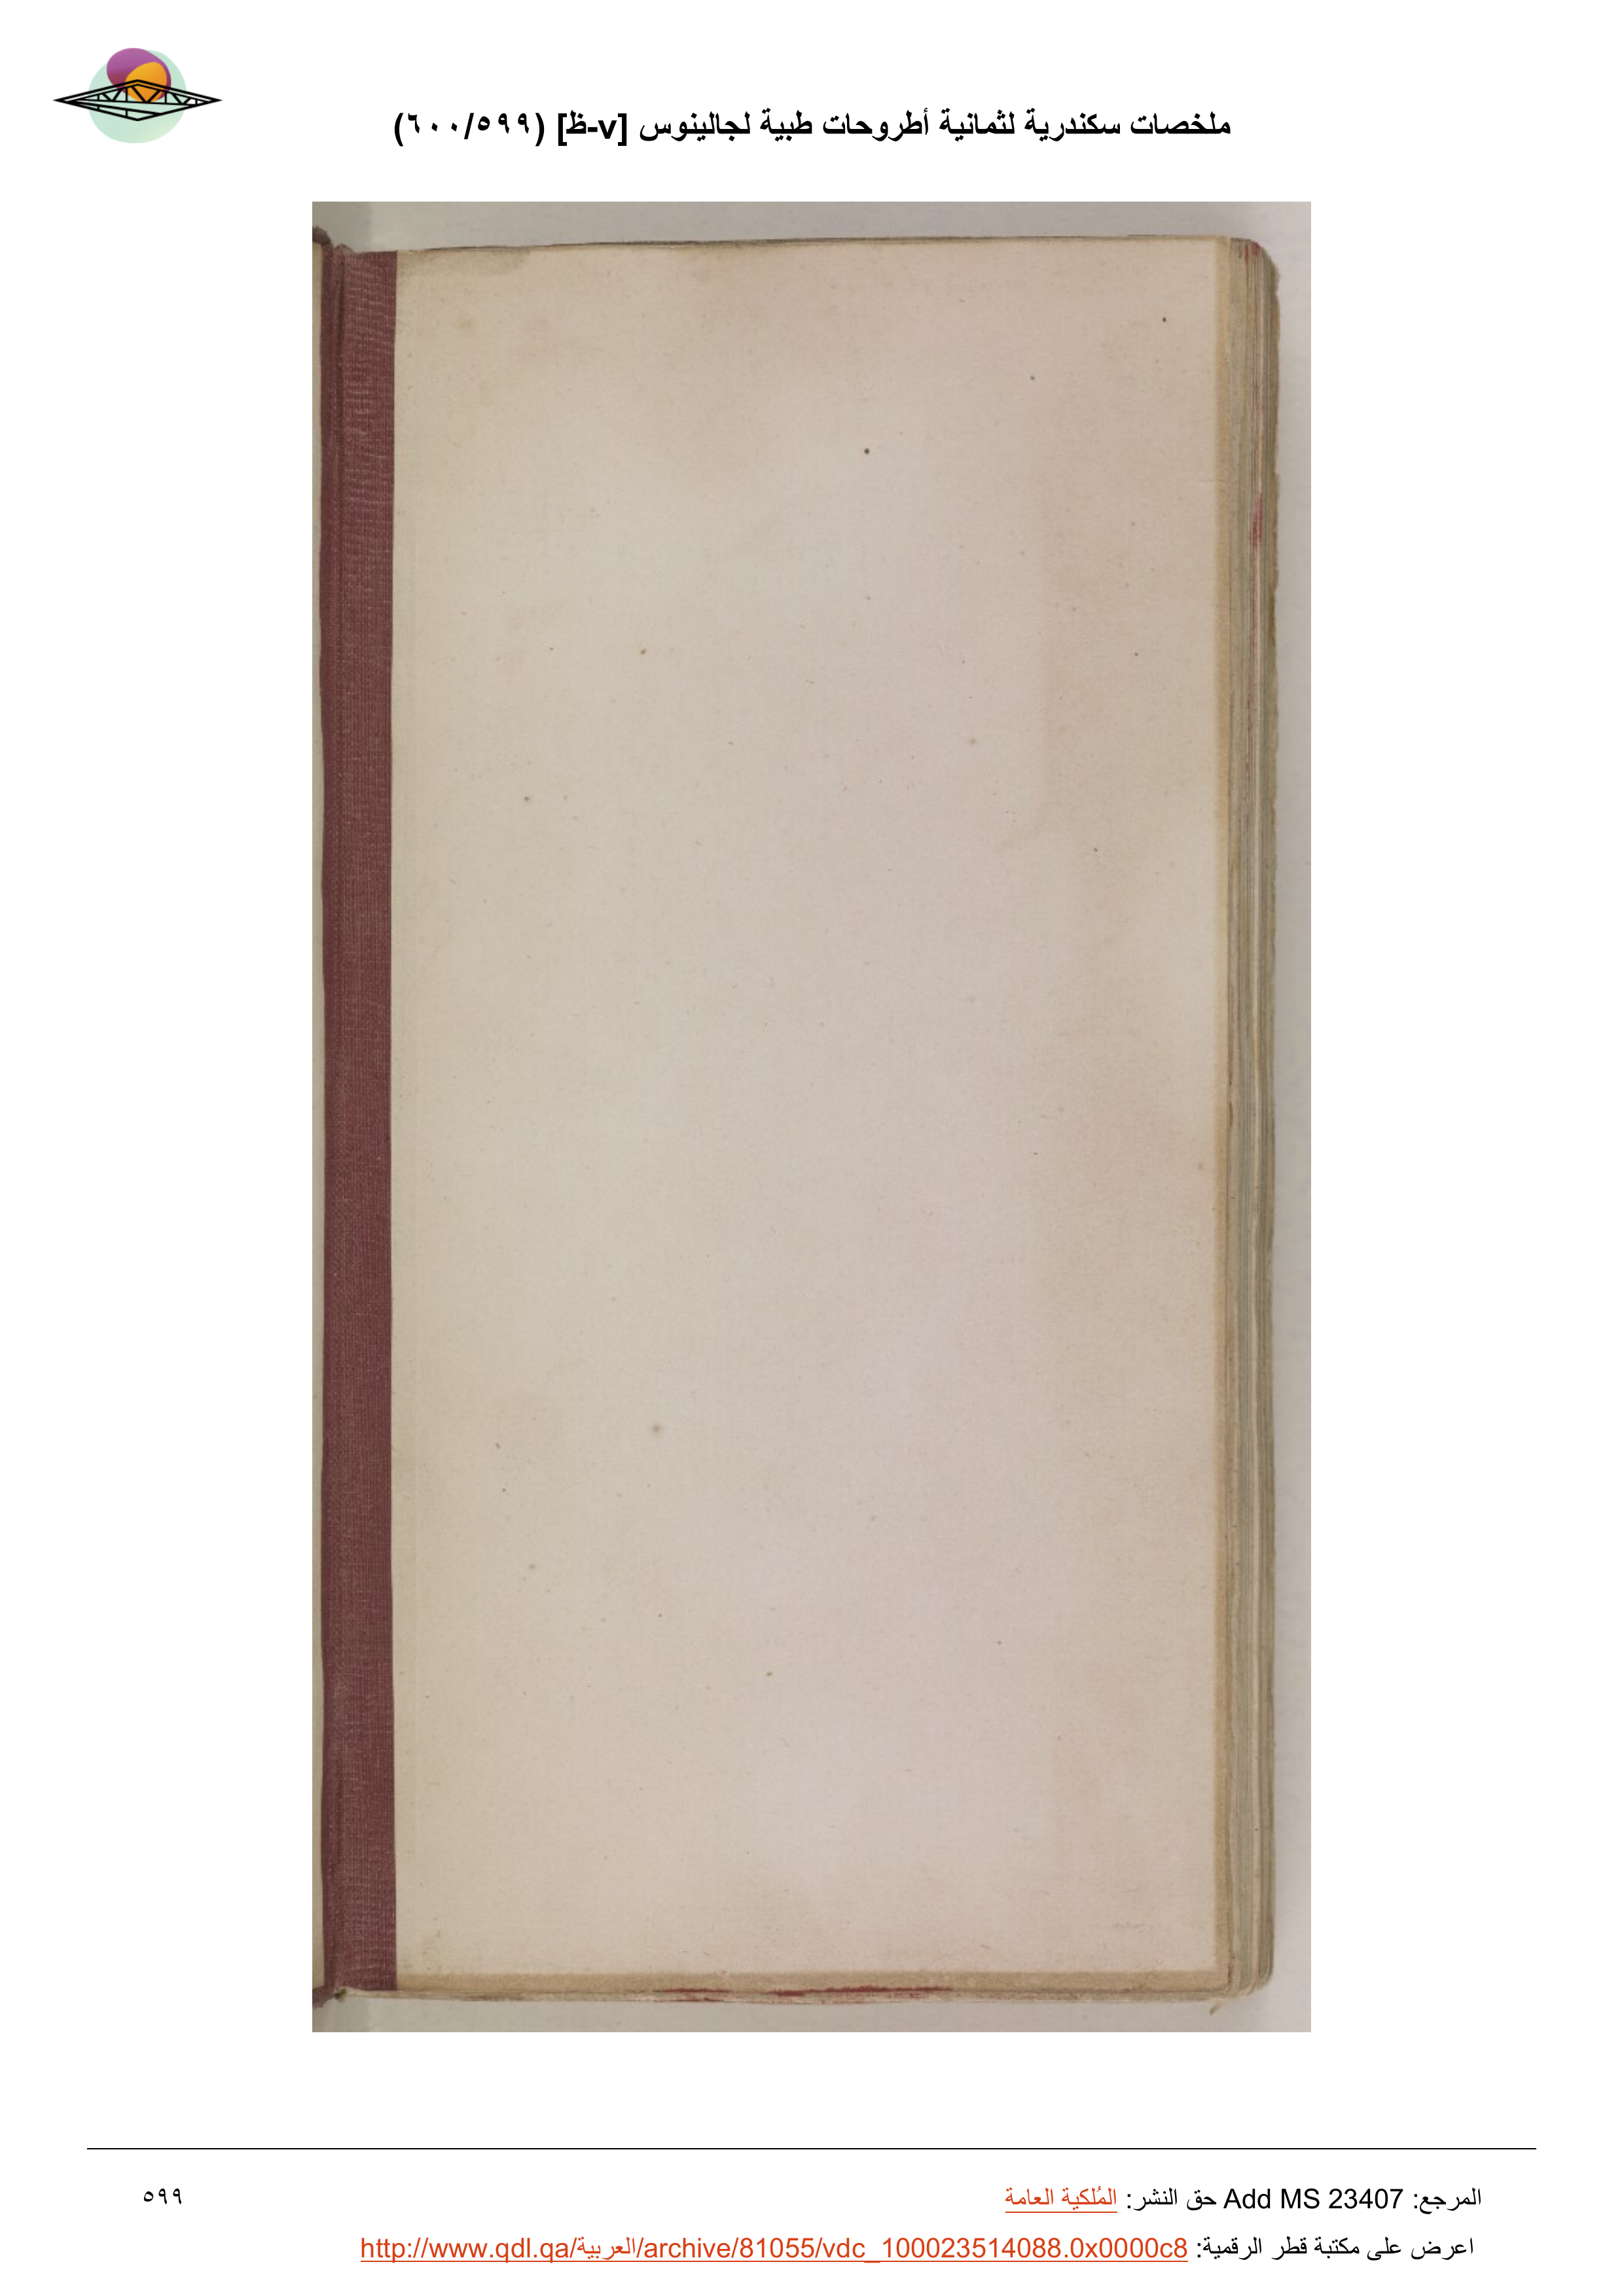 ملخصات سكندرية لثمانية أطروحات طبية لجالينوس [v-ظ] (٥٩٩/٦٠٠)
المرجع: Add MS 23407 حق النشر: المُلكية العامة
٥٩٩
اعرض على مكتبة قطر الرقمية: http://www.qdl.qa/العربية/archive/81055/vdc_100023514088.0x0000c8